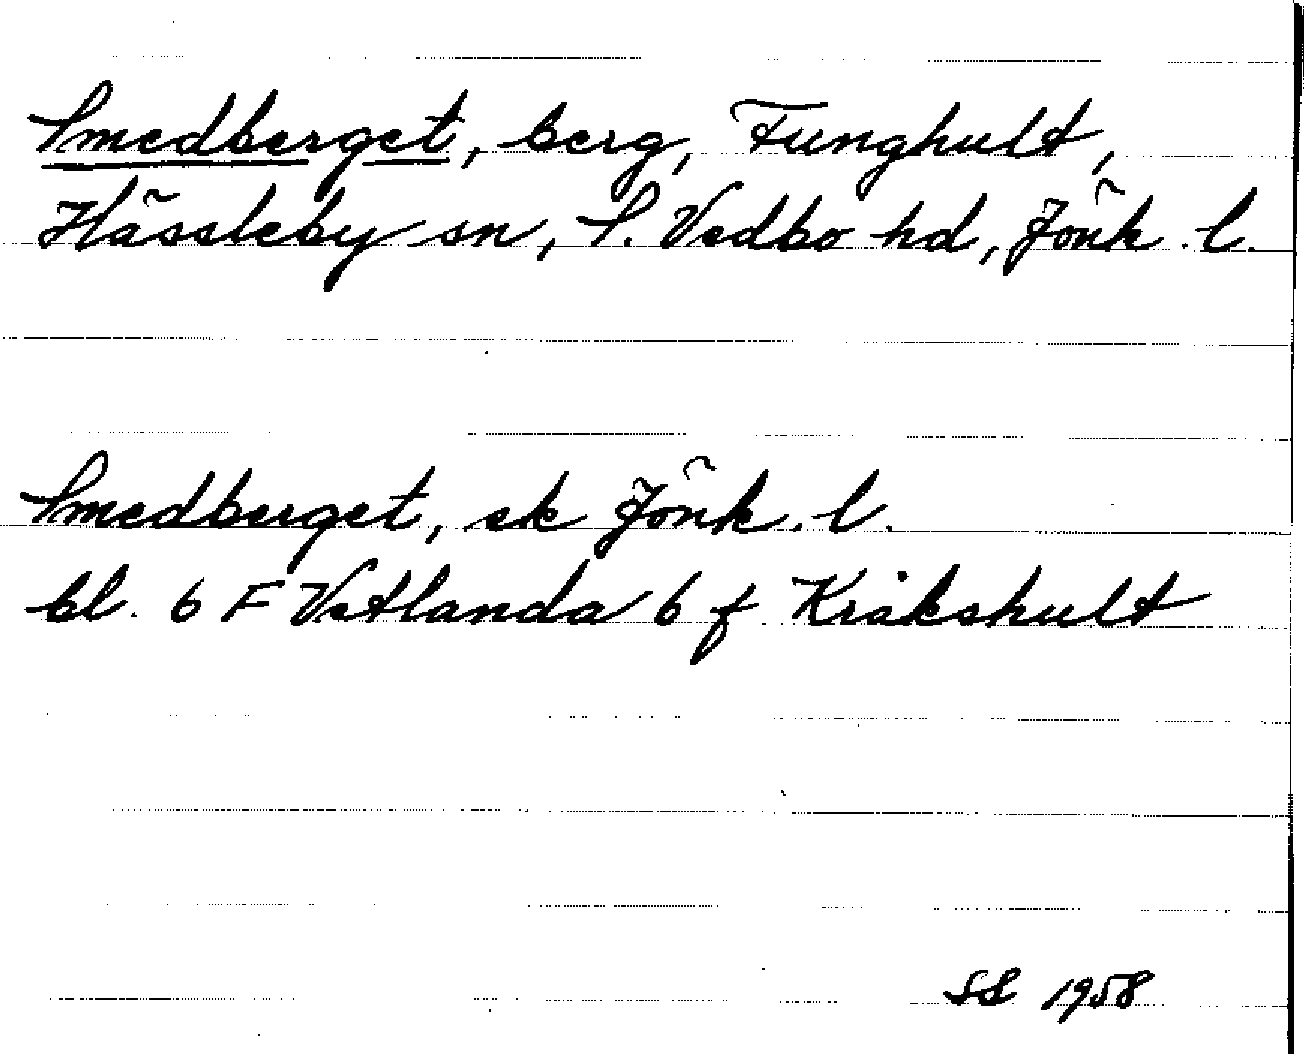 Smedberget, berg, Funghult,
Hässleby sn, S. Vedbo hd, Jönk. l.
Smedberget, ek Jönk. l.
bl. 6 F Vetlanda 6 f Kråkshult
SL 1958